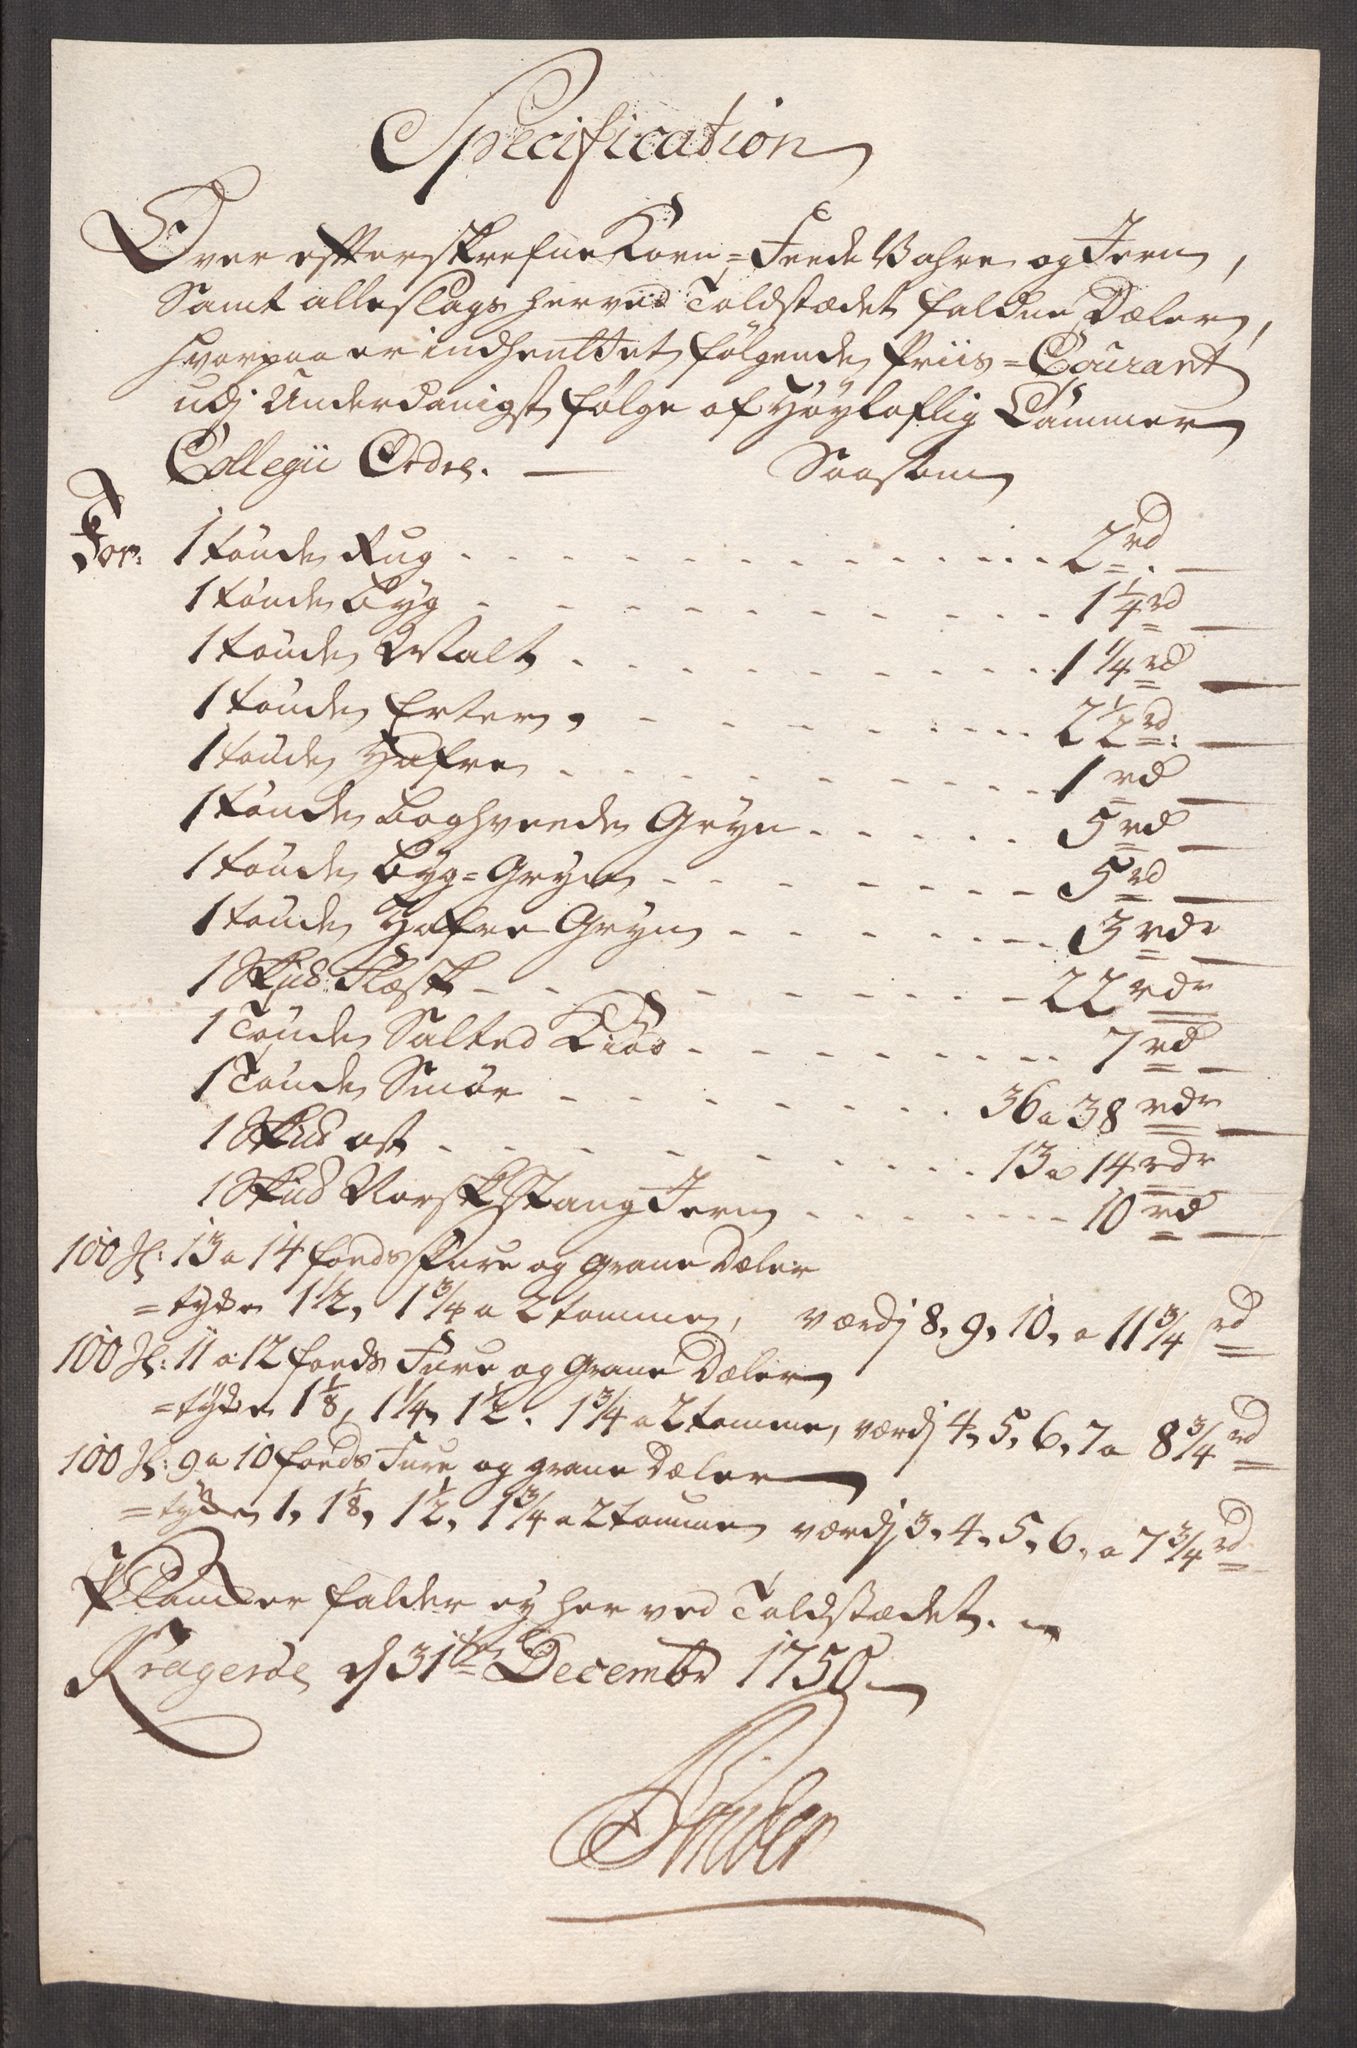 Specification
Over efterskrefne Korn = Feede Vahre og Jern,
Samt alle slags her ved Toldstædet faldne Dæler,
hvorpaa er indhenttet følgende Priis = Courant
udj Underdanigst følge af Høyloflig Cammer
Collegii Ordre. — Saasom
For: 1 tønde Rug - - - 2 rd
1 tønde Byg - - - 1 1/4 rd
1 tønde Malt - - - 1 1/4 rd
1 tønde Erter - - - 2 1/2 rd
1 tønde Hafre - - - 1 rd
1 tønde Boghveede Gryn - - - 5 rd
1 tønde Byg = Gryn - - - 5 rd
1 tønde Hafre Gryn - - - 3 rdr
1 Skud: Flæsk - - - 22 rdr
1 Tønde Salted Kiød - - - 7 rd
1 Tønde Smør - - - 36 a 38 rdr
1 Skud ost - - - 13 a 14 rdr
1 Skud Norsk Stang Jern - - - 10 rd
100 St: 13 a 14 fords Fure og Grane Dæler
= tyke 1 1/2, 1 3/4 a 2 tomme, værdj 8, 9, 10, a 11 3/4 rd
100 St: 11 a 12 fords Fure og Grane Dæler
= tyke 1 1/8, 1 1/4, 1 1/2, 1 3/4 a 2 tomme, værdj 4, 5, 6, 7 a 8 3/4 rd
100 St: 9 a 10 fords Fure og grane Dæler
= tyke 1, 1 1/8, 1 1/2, 1 3/4 a 2 tomme værdj 3, 4, 5, 6, a 7 3/4 rd
Plancker falder ey her ved Toldstædet.
Kragerøe d 31te Decembr 1750